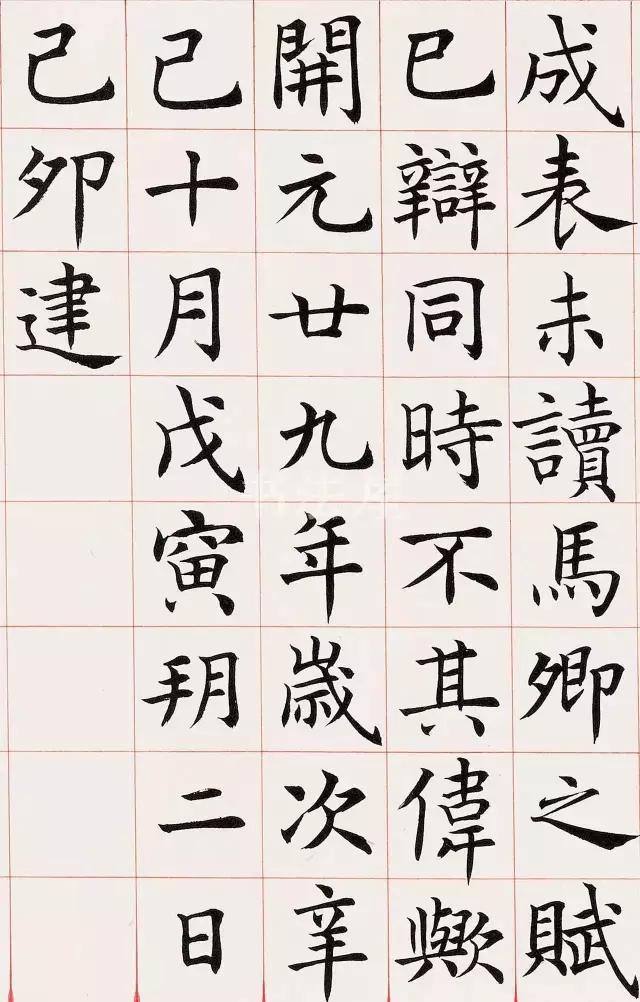 成表未讀馬卿之賦
已辯同時不其偉歟
開元廿九年歲次辛
巳十月戊寅朔二日
己卯建
书法屋